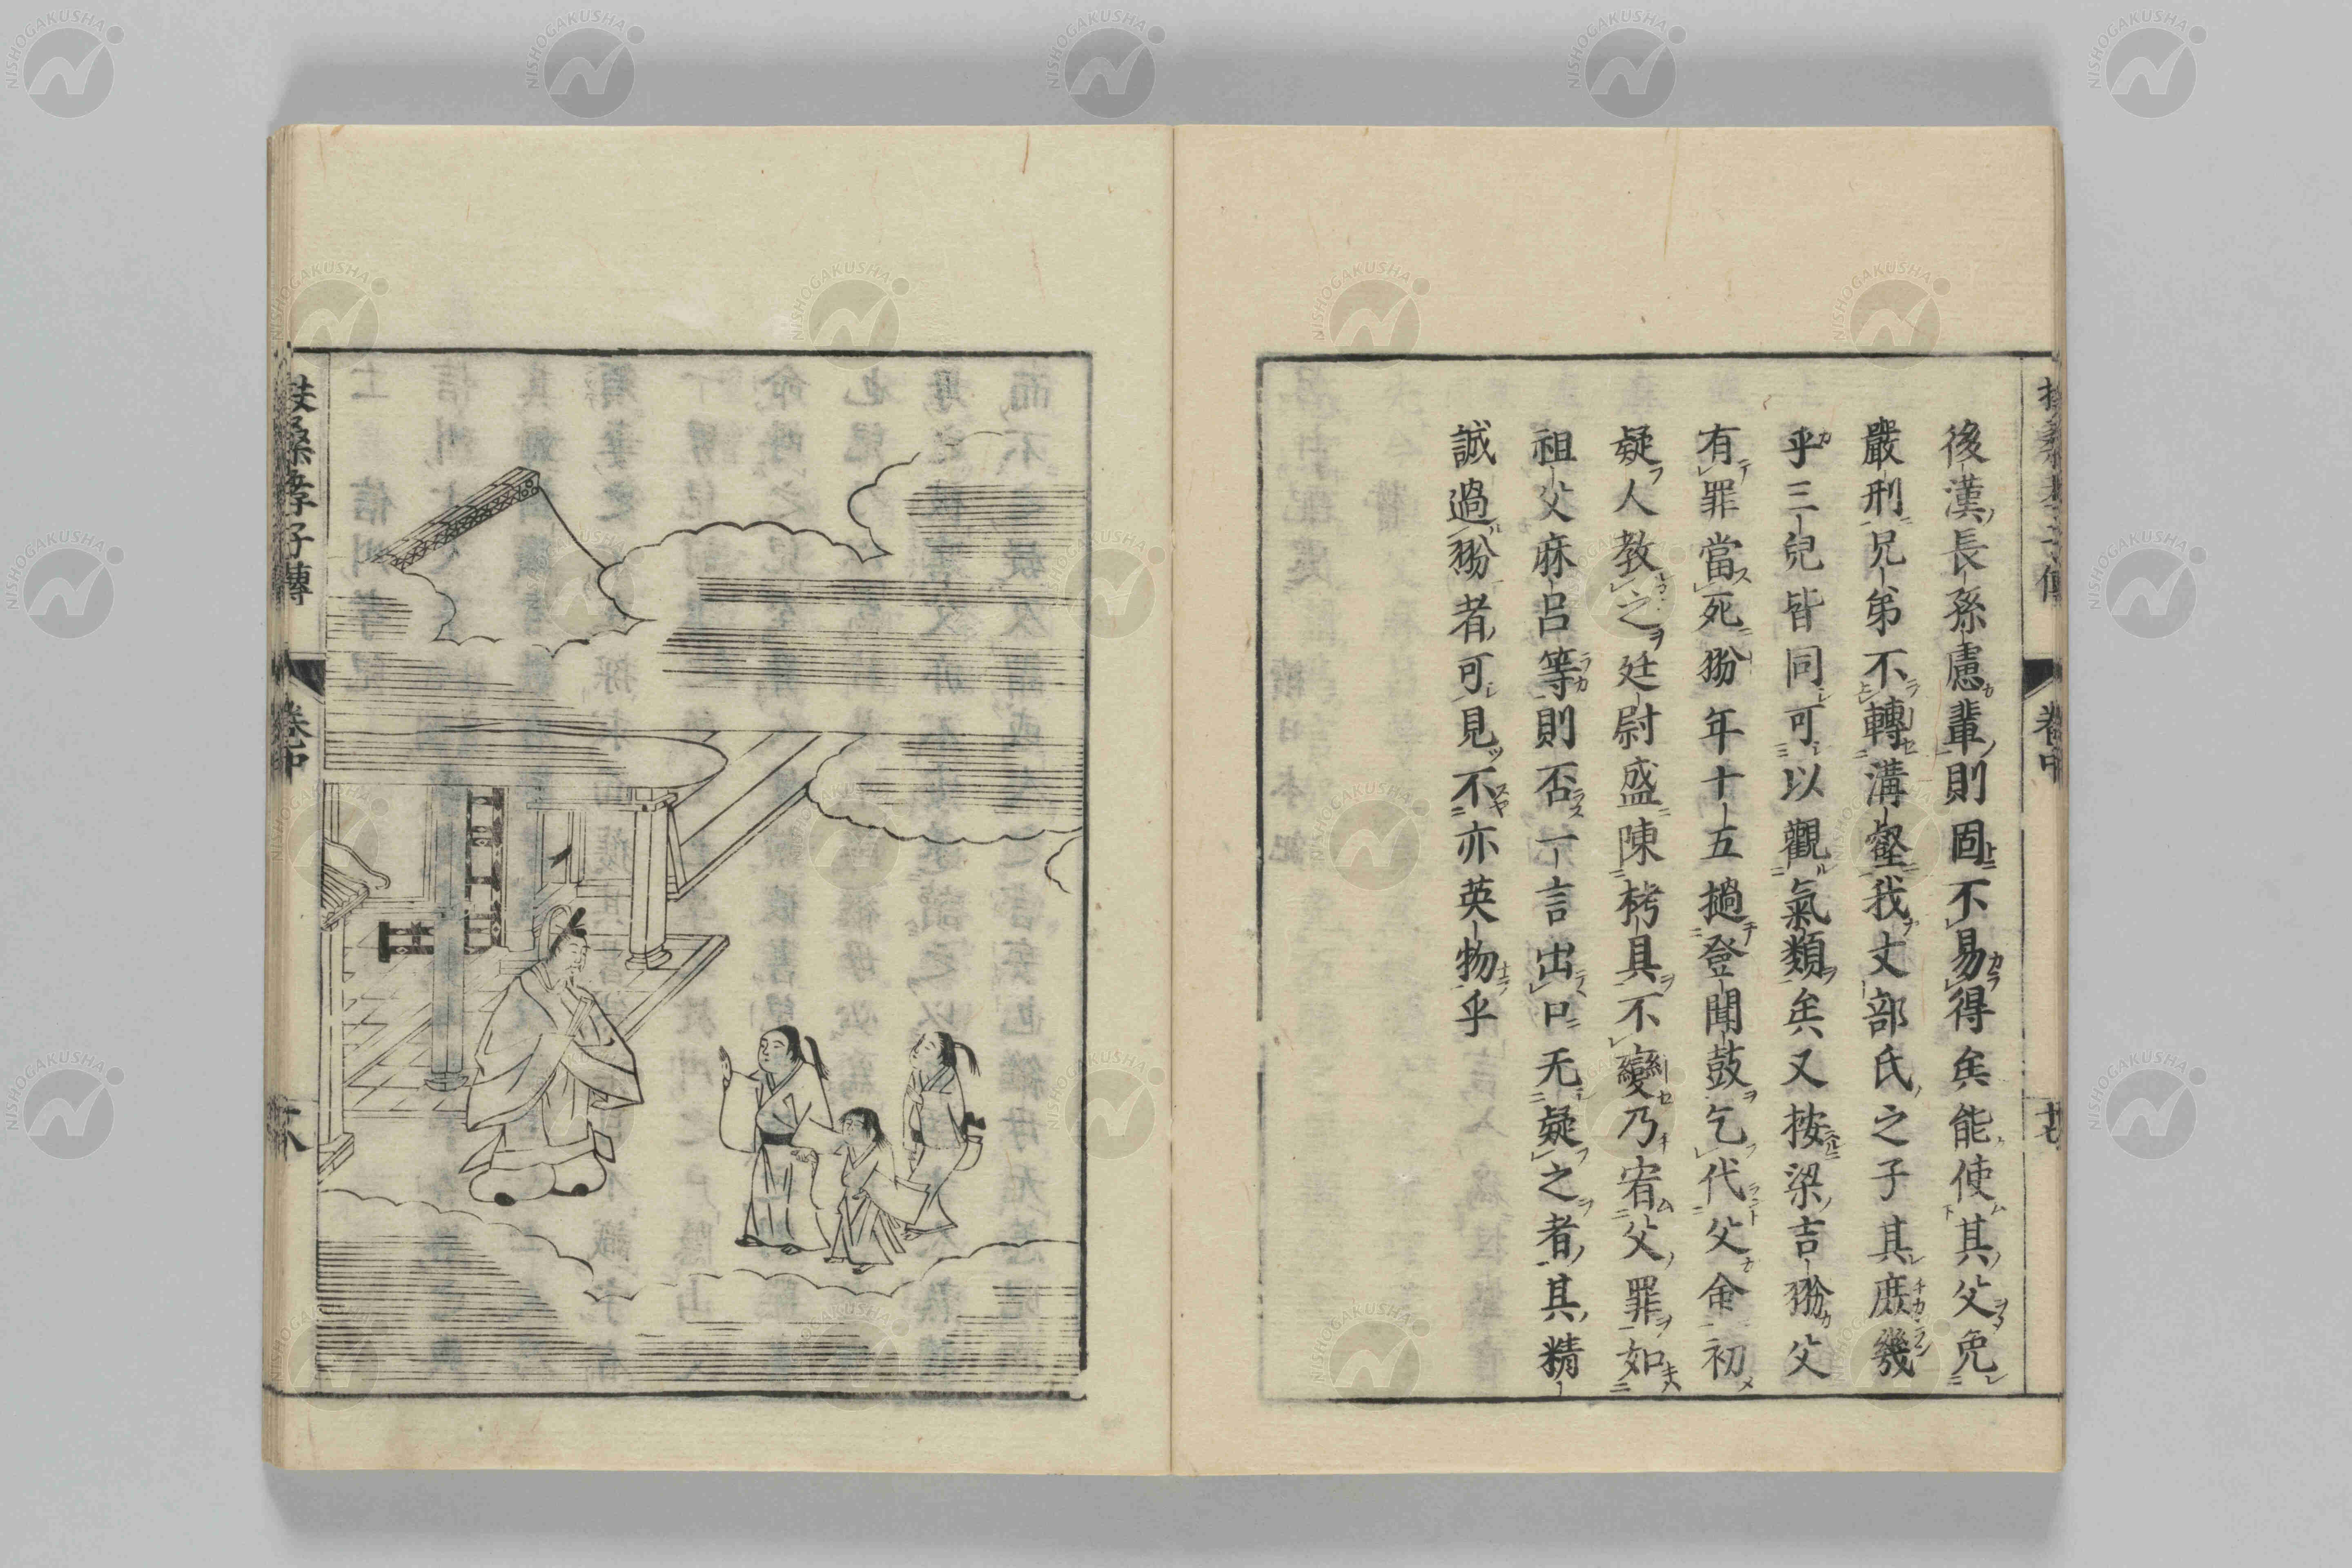 後漢長孫慮輩則固不易得矣能使其父免
嚴刑兄弟不轉溝壑我丈部氏之子其庶幾
乎三兒皆同可以觀氣類矣又按梁吉翂父
有罪當死翂年十五撾登聞鼓乞代父命初
疑人教之廷尉盛陳栲具不變乃宥父罪如
祖父麻呂等則否一言出口无疑之者其精
誠過翂者可見不亦英物乎
扶桑孝子傳
卷中
扶桑孝子傳
卷中
NISHOGAKUSHA